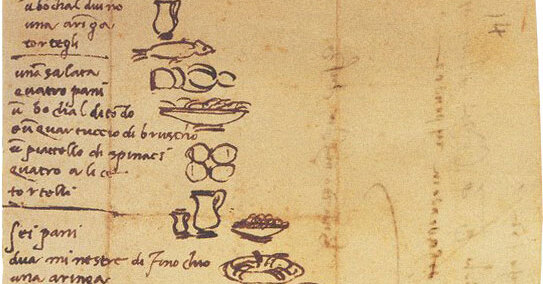 ū bochal di vino
una aringa
tortegli
una salata
quatro pani
ū bochal di tōdo
e ū quartuccio di bruschio
ū piattello di spinaci
quatro alice
tortelli
Sei pani
dua minestre di finochio
una aringa
14